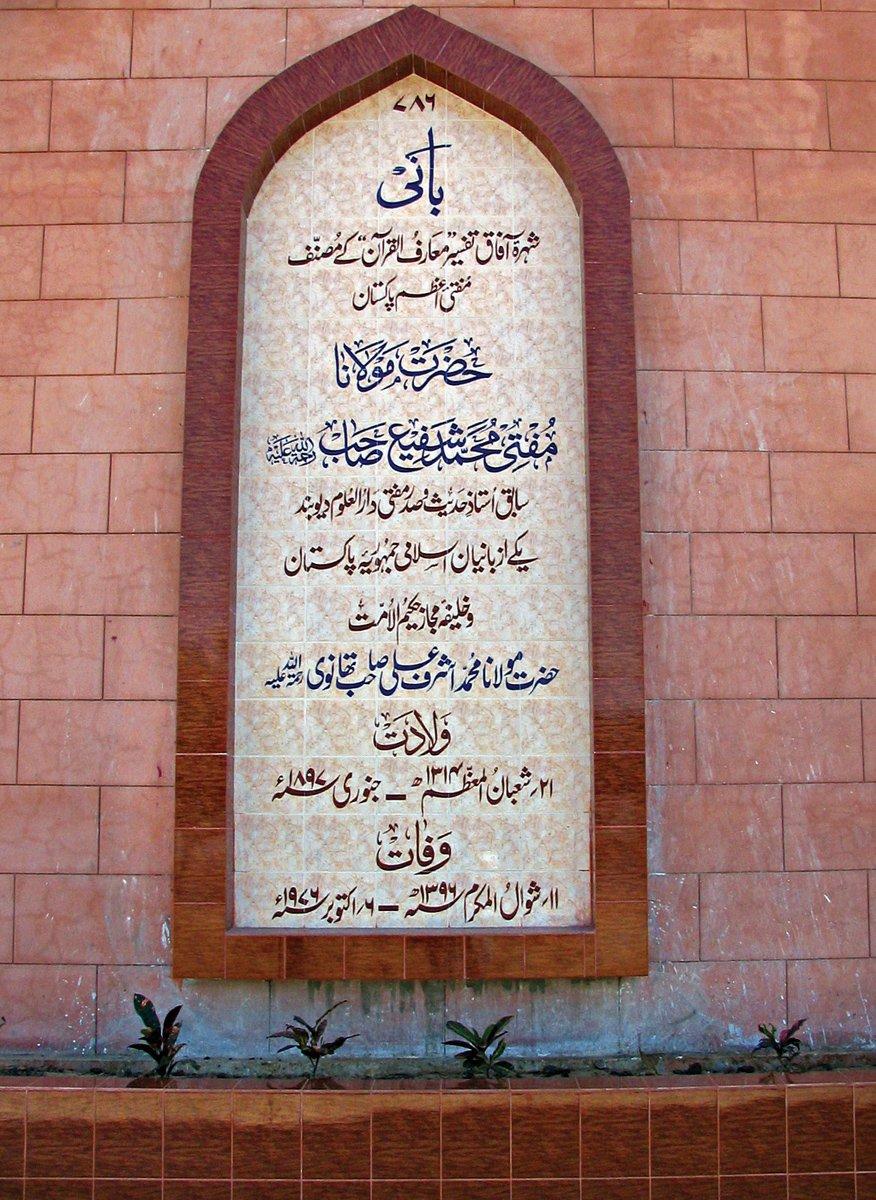 ۷۸۶
بانی
شہرۂ آفاق تفسیر "معارفُ القرآن" کے مُصنّف
مُفتیٔ اعظم پاکستان
حضرت مولانا
مُفتی مُحمّد شفیع صاحب رحمۃ اللہ علیہ
سابق اُستاذِ حدیث و صدر مفتی دارُالعلوم دیوبند
یکے از بانیان اسلامی جمہوریۂ پاکستان
و خلیفۂ مجاز حکیمُ الاُمّت
حضرت مولانا مُحمّد اشرف علی صاحب تھانوی رحمۃ اللہ علیہ
وَلادَت
۲۱؍ شعبانُ المعظّم ۱۳۱۴ھ – جنوری ۱۸۹۷ء
وَفات
۱۱؍ شوالُ المکرم ۱۳۹۶ھ – ۶؍ اکتوبر ۱۹۷۶ء